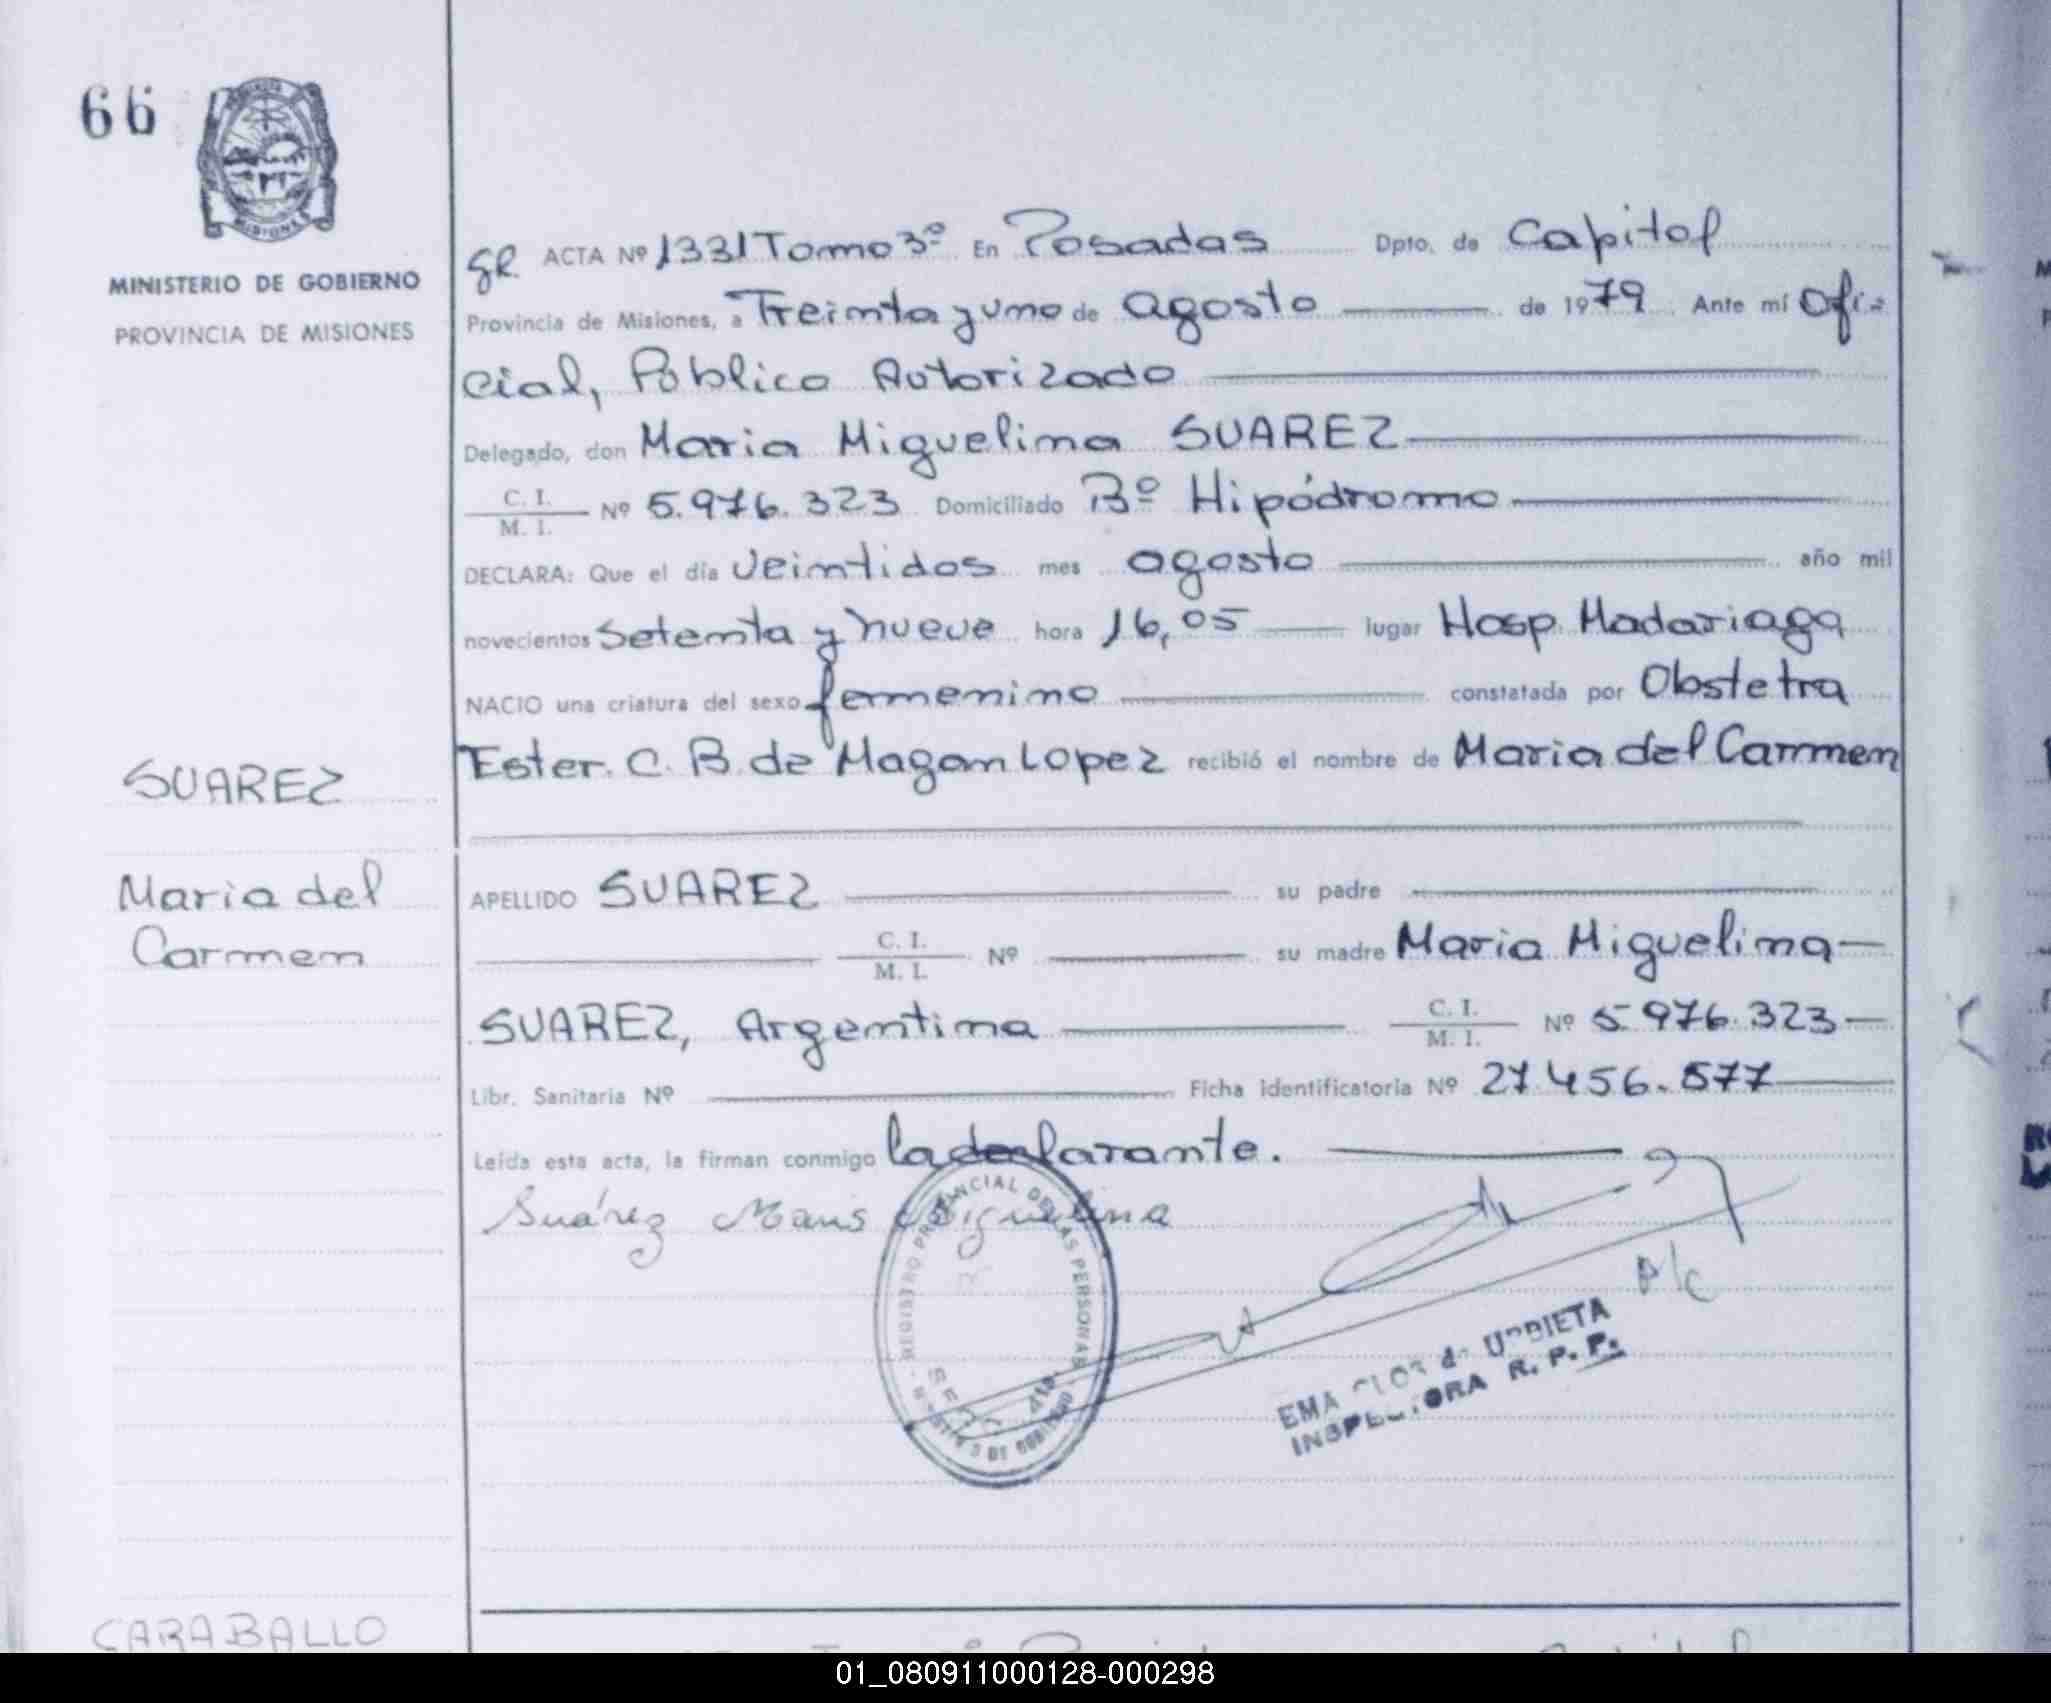 66
MISIONES
MINISTERIO DE GOBIERNO
PROVINCIA DE MISIONES
SUAREZ
Maria del
Carmen
CARABALLO
ACTA Nº 1331 Tomo 3º En Posadas Dpto. de Capital
Provincia de Misiones, a Treinta y uno de agosto de 1979 Ante mí Ofi-
cial, Público Autorizado
Delegado, don Maria Miguelina SUAREZ
C. I.
M. I. Nº 5.976.323 Domiciliado Bº Hipódromo
DECLARA: Que el día veintidos mes agosto año mil
novecientos setenta y nueve hora 16,05 lugar Hosp. Madariaga
NACIO una criatura del sexo femenino constatada por Obstetra
Ester. C. B. de Magan Lopez recibió el nombre de Maria del Carmen
APELLIDO SUAREZ su padre
C. I.
M. I. Nº su madre Maria Miguelina
SUAREZ, Argentina C. I.
M. I. Nº 5.976.323
Libr. Sanitaria Nº Ficha identificatoria Nº 27.456.577
Leída esta acta, la firman conmigo la declarante.
Suárez Maria Miguelina
REGISTRO PROVINCIAL DE LAS PERSONAS
A/C
EMA de URBIETA
INSPECTORA R. P. P.
01_080911000128-000298